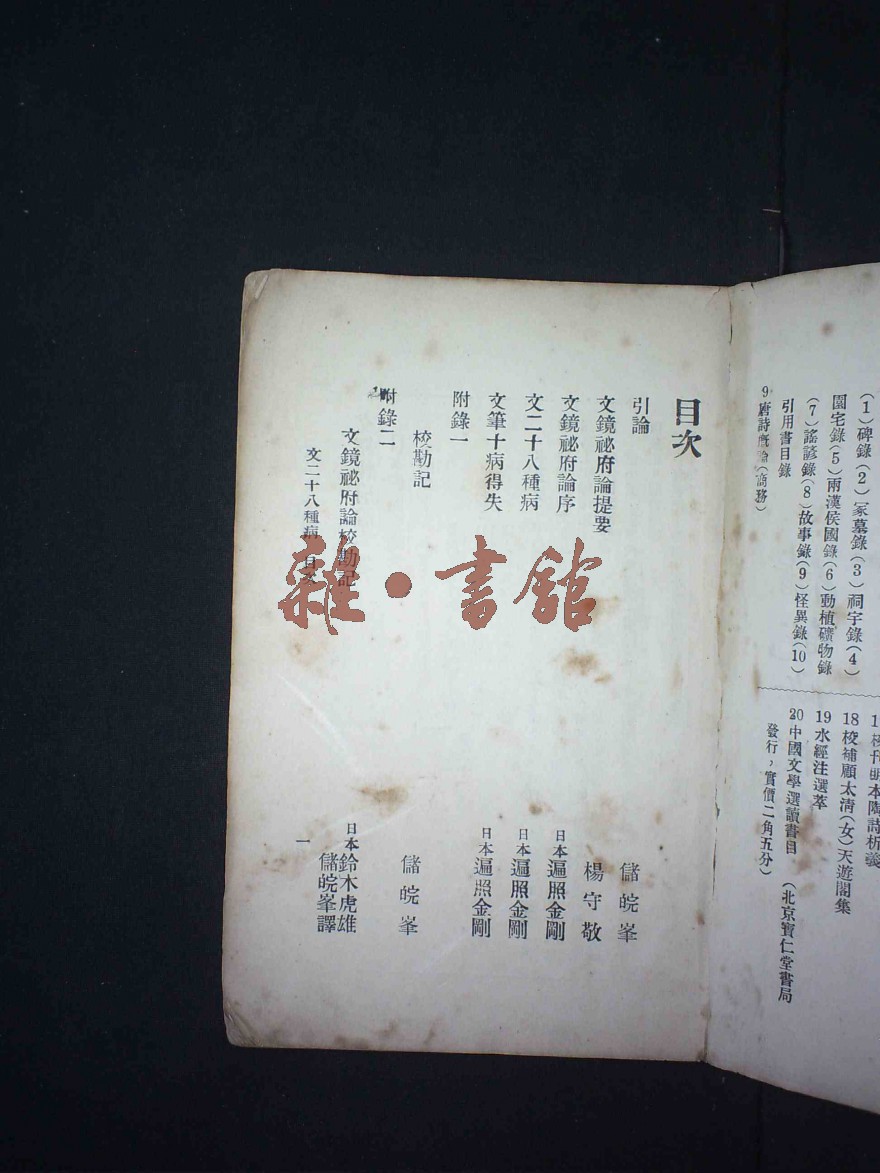 (1)碑錄(2)冢墓錄(3)祠宇錄(4)
園宅錄(5)兩漢侯國錄(6)動植礦物錄
(7)謠諺錄(8)故事錄(9)怪異錄(10)
引用書目錄
9唐詩概論(商務)
18校補顧太清(女)天遊閣集
19水經注選萃
20中國文學選讀書目 (北京寶仁堂書局
發行,實價二角五分)
目次
引論 儲皖峯
文鏡祕府論提要 楊守敬
文鏡祕府論序 日本遍照金剛
文二十八種病 日本遍照金剛
文筆十病得失 日本遍照金剛
附錄一
校勘記 儲皖峯
附錄二
文鏡祕府論校勘記 日本鈴木虎雄
儲皖峯譯
文二十八種病 目次
一
雜·書館